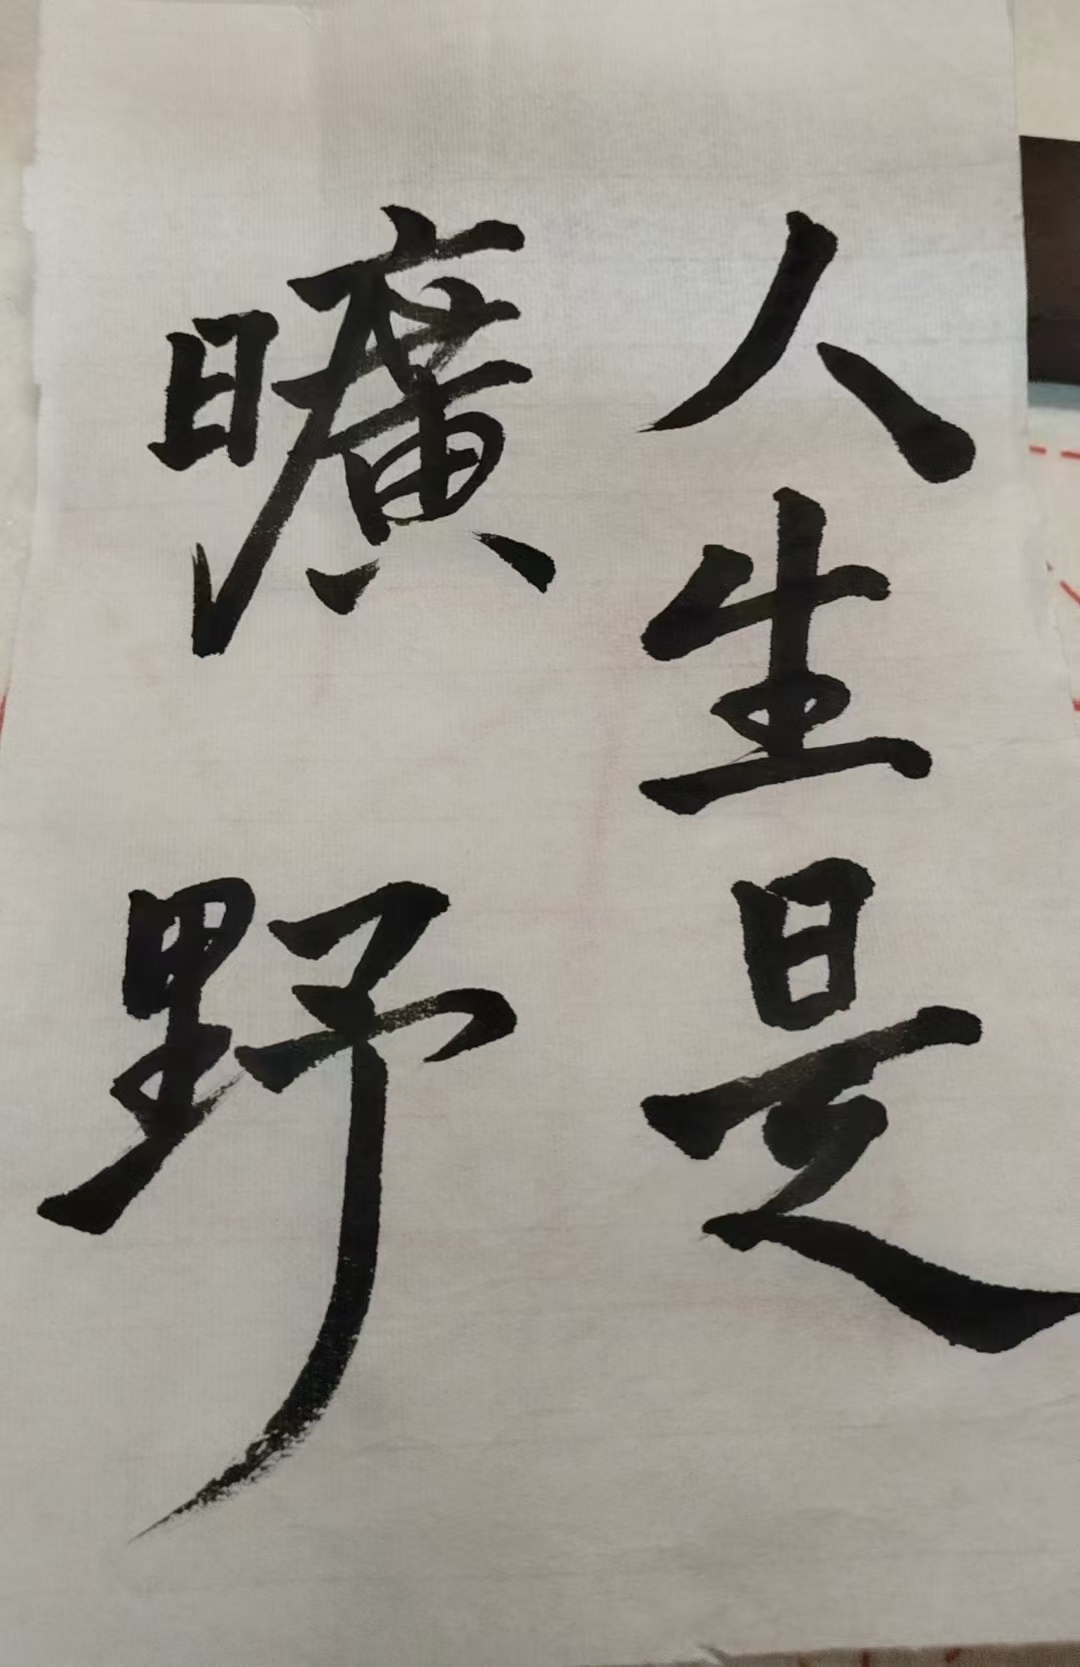 人生是
曠野